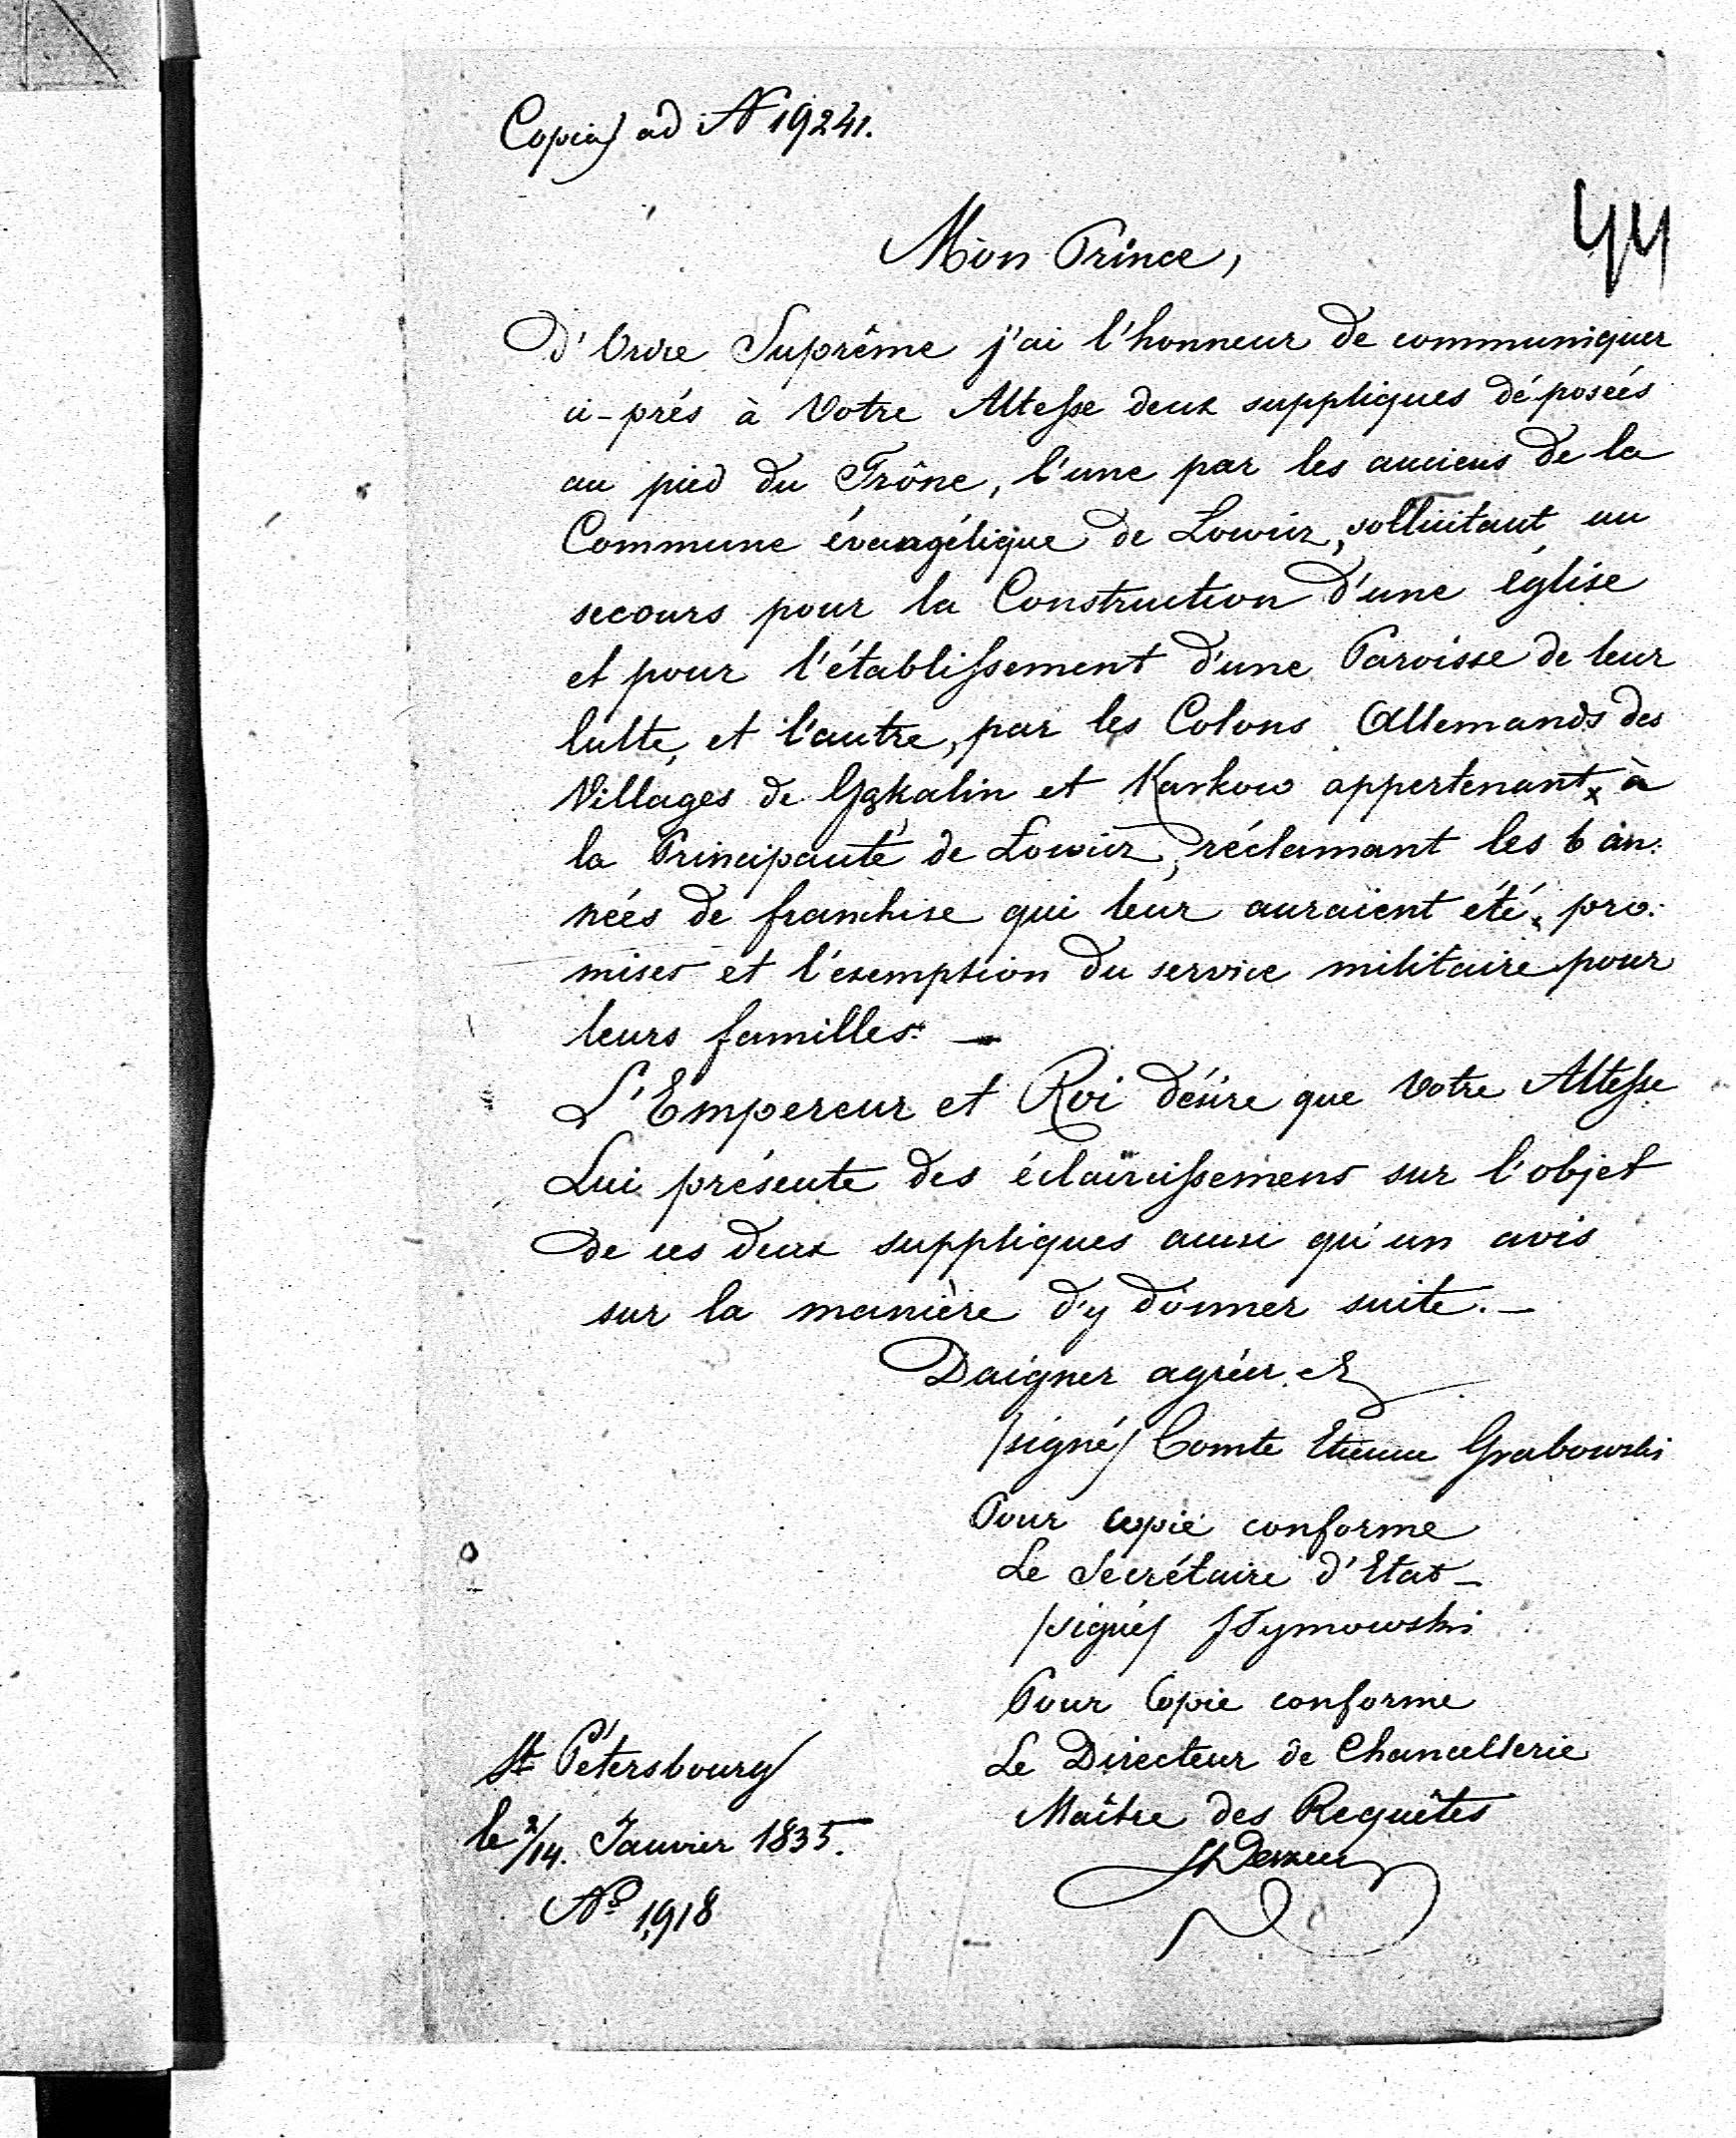 Copia ad N 19241.
44
Mon Prince,
D'Ordre Suprême j'ai l'honneur de communiquer
ci-prés à Votre Altesse deux suppliques déposées
au pied du Trône, l'une par les anciens de la
Commune évangélique de Lowicz, sollicitant un
secours pour la Construction d'une église
et pour l'établissement d'une Paroisse de leur
culte, et l'autre, par les Colons Allemands des
Villages de et Karkow appertenant à
la Principauté de Lowicz, réclamant les 6 an:
nées de franchise qui leur auraient été pro:
mises et l'exemption du service militaire pour
leurs familles. —
L'Empereur et Roi désire que Votre Altesse
Lui présente des éclaircissemens sur l'objet
de ces deux suppliques ainsi qu'un avis
sur la manière d'y donner suite. —
Daigner agréer
/signé/ Comte Etienne Grabowski
Pour copie conforme
Le Secrétaire d'Etat —
/signé/ Tymowski
Pour Copie conforme
Le Directeur de Chancellerie
Maître des Requêtes
St Pétersbourg
le 2/14. Janvier 1835.
No 1,918